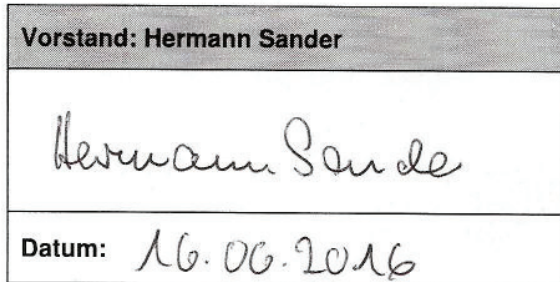 Vorstand: Hermann Sander
Hermann Sande
Datum: 16.06.2016